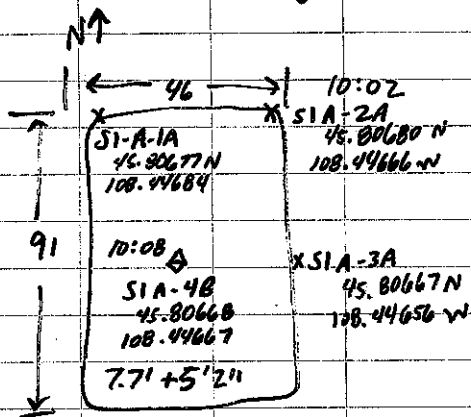 N↑
46
10:02
S1-A-1A
45.80677N
108.44684
S1A-2A
45.80680 N
108.44666 W
91
10:08
S1A-4B
45.80668
108.44667
x S1A-3A
45.80667N
108.44656 W
7.7' + 5'2"